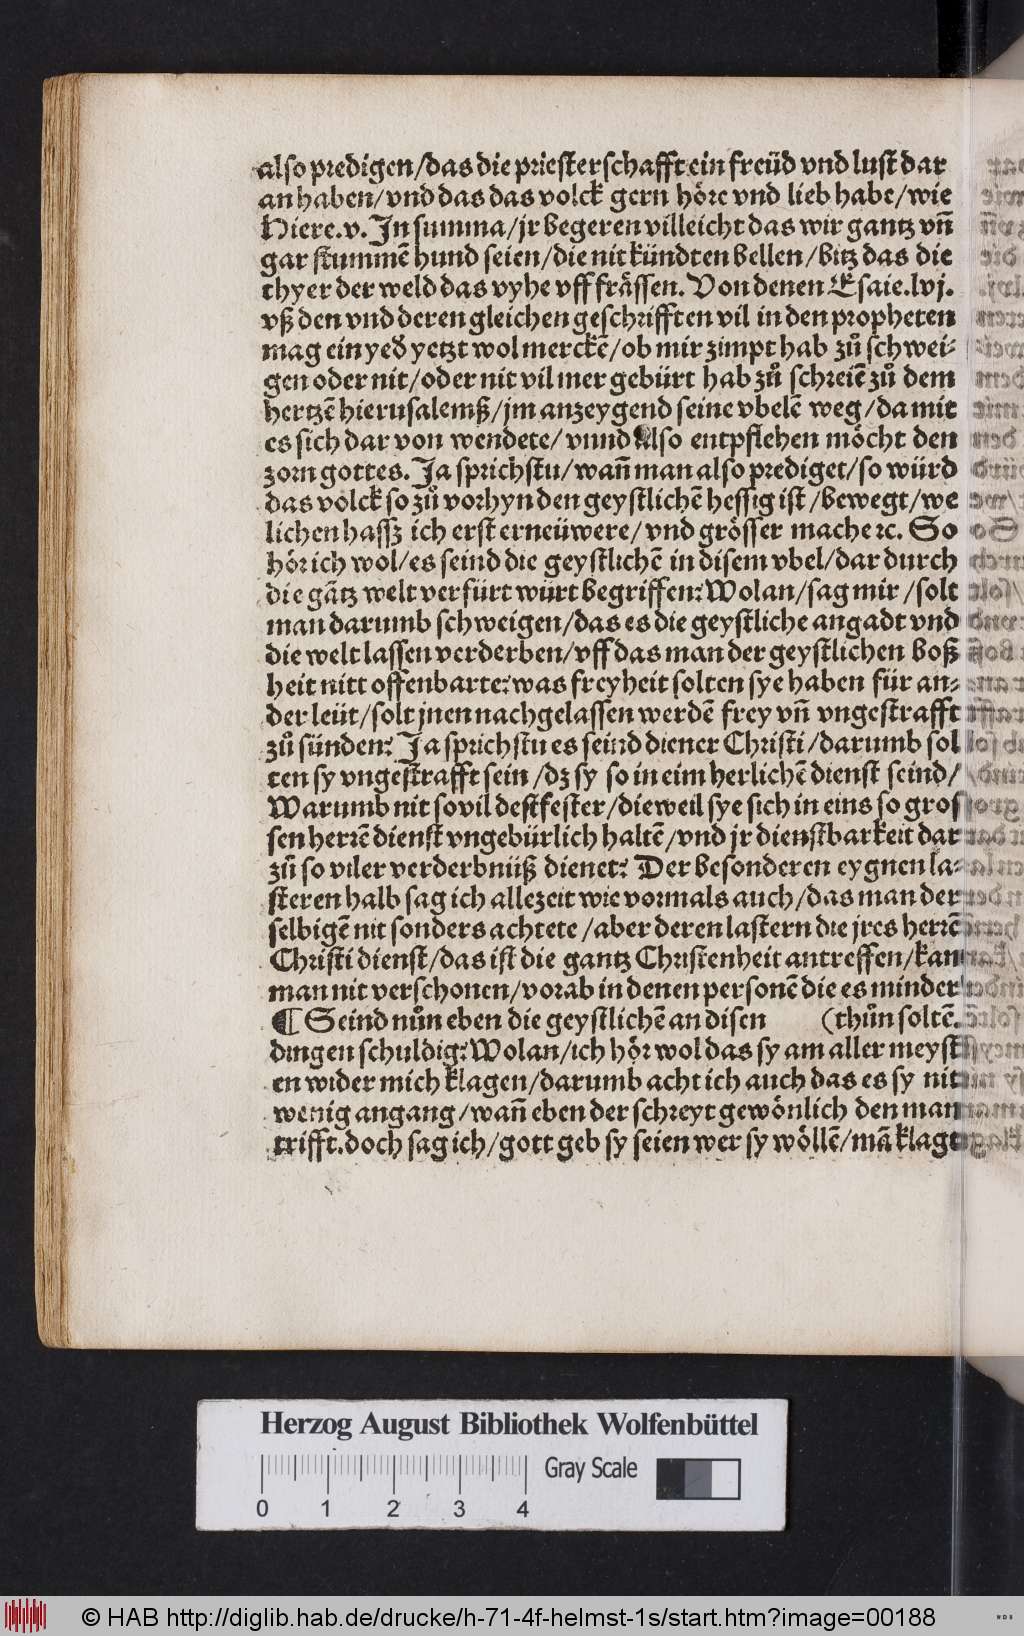 also predigen/das die priesterschafft ein freüd vnd lust dar
an haben/vnd das das volck gern höre vnd lieb habe/wie
Hiere.v. In summa/jr begeren villeicht das wir gantz vn̄
gar stummē hund seien/die nit kündten bellen/bitz das die
thyer der weld das vyhe vff frässen. Von denen Esaie.lvj.
vß den vnd deren gleichen geschrifften vil in den propheten
mag ein yed yetzt wol merckē/ob mir zimpt hab zů schwei-
gen oder nit/oder nit vil mer gebürt hab zů schreiē zů dem
hertzē hierusalemß/jm anzeygend seine vbelē weg/da mit
es sich dar von wendete/vnnd also entpflehen möcht den
zorn gottes. Ja sprichstu/wan̄ man also prediget/so würd
das volck so zů vorhyn den geystlichē hessig ist/bewegt/we
lichen hassz ich erst erneüwere/vnd grösser mache ꝛc. So
hör ich wol/es seind die geystlichē in disem vbel/dar durch
die gātz welt verfürt würt begriffen? Wolan/sag mir/solt
man darumb schweigen/das es die geystliche angadt vnd
die welt lassen verderben/vff das man der geystlichen boß
heit nitt offenbarte? was freyheit solten sye haben für an-
der leüt/solt jnen nachgelassen werdē frey vn̄ vngestrafft
zů sünden? Ja sprichstu es seind diener Christi/darumb sol
ten sy vngestrafft sein/dz sy so in eim herlichē dienst seind/
Warumb nit sovil destfester/dieweil sye sich in eins so gros
sen herrē dienst vngebürlich haltē/vnd jr dienstbarkeit dar
zů so viler verderbnüß dienet? Der besonderen eygnen la-
steren halb sag ich allezeit wie vormals auch/das man der
selbigē nit sonders achtete/aber deren lastern die jres herrē
Christi dienst/das ist die gantz Christenheit antreffen/kan
man nit verschonen/vorab in denen personē die es minder
¶ Seind nůn eben die geystlichē an disen (thůn soltē.
dingen schuldig? Wolan/ich hör wol das sy am aller meyst
en wider mich klagen/darumb acht ich auch das es sy nit
wenig angang/wan̄ eben der schreyt gewönlich den man
trifft. doch sag ich/gott geb sy seien wer sy wöllē/mā klagt
Herzog August Bibliothek Wolfenbüttel
Gray Scale
0 1 2 3 4
© HAB http://diglib.hab.de/drucke/h-71-4f-helmst-1s/start.htm?image=00188